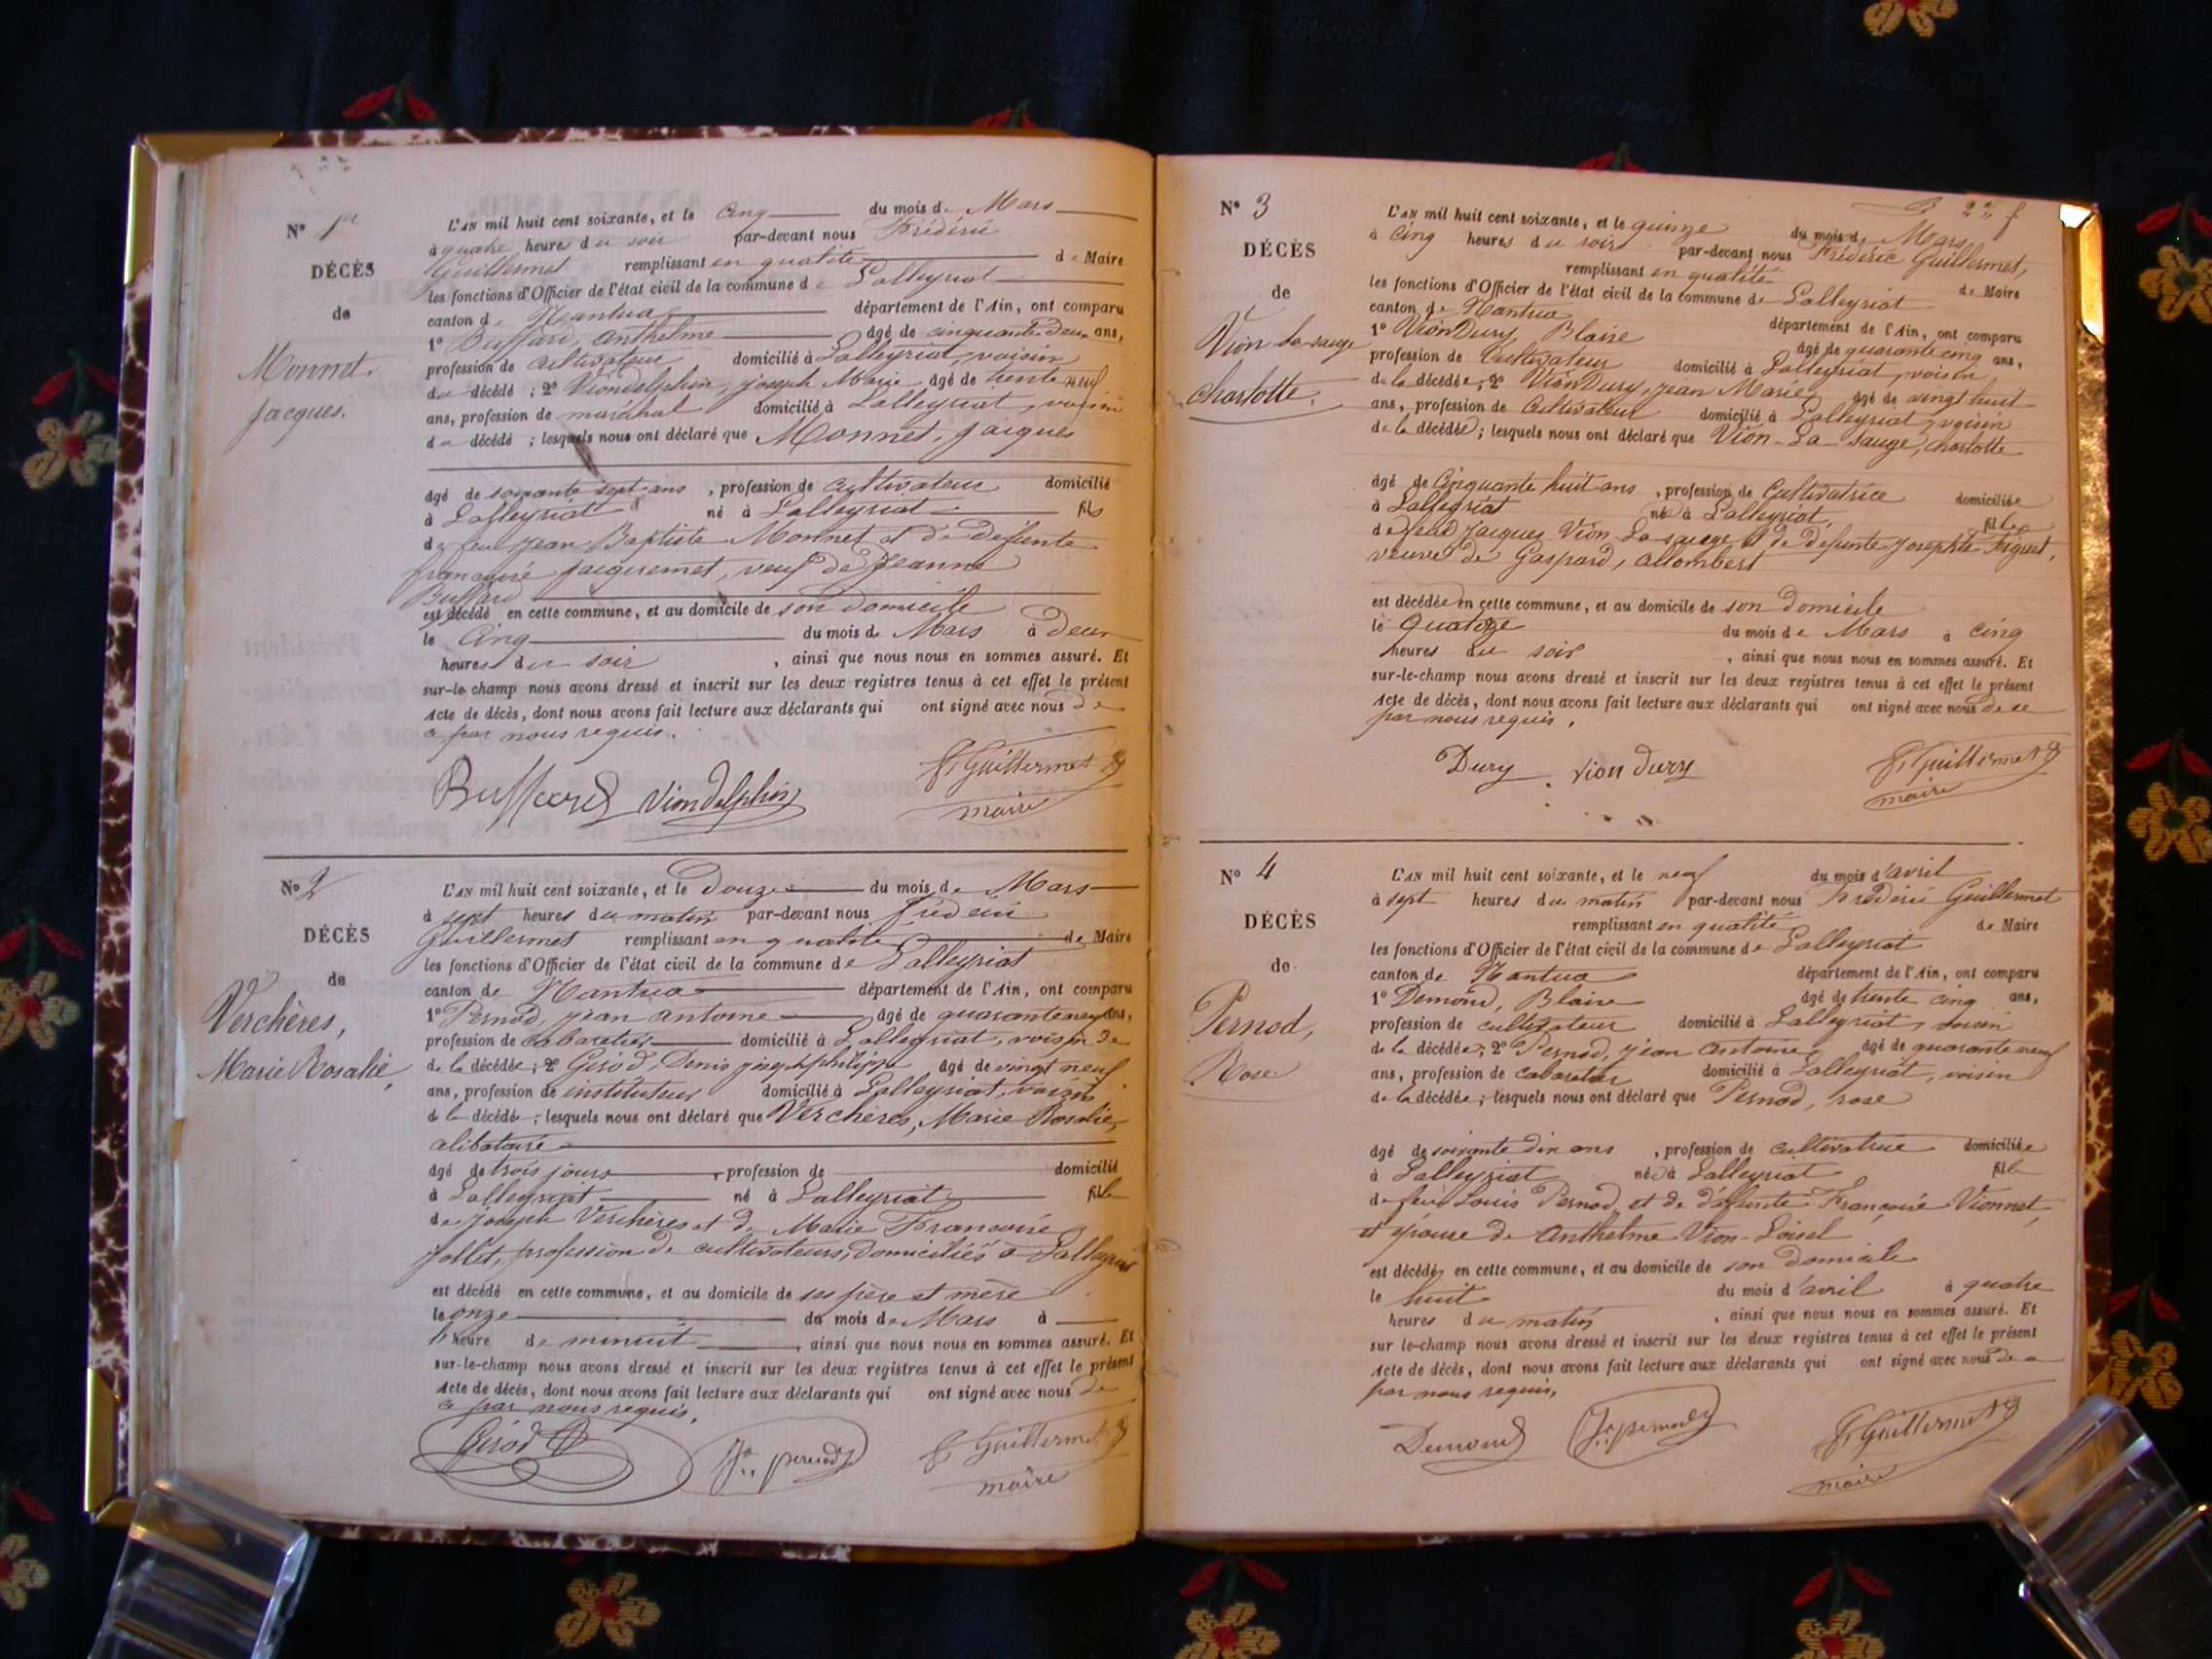 N° 1er
DÉCÈS
de
Monnet.
Jacques.
L'AN mil huit cent soixante, et le Cinq du mois de Mars
à quatre heures du soir par-devant nous Frédéric
Guillermet remplissant en qualité de Maire
les fonctions d'Officier de l'état civil de la commune de Lalleyriat
canton de Nantua département de l'Ain, ont comparu
1° Buffard, Anthelme âgé de cinquante deux ans,
profession de cultivateur domicilié à Lalleyriat, voisin
du décédé ; 2° Viondelphin, Joseph Marie âgé de trente neuf
ans, profession de maréchal domicilié à Lalleyriat, voisin
du décédé ; lesquels nous ont déclaré que Monnet, Jacques
âgé de soixante sept ans , profession de Cultivateur domicilié
à Lalleyriat né à Lalleyriat fils
de feu Jean Baptiste Monnet et de défunte
françoise Jacquemet, veuf de Jeanne
Buffard
est décédé en cette commune, et au domicile de son domicile
le Cinq du mois de Mars à deux
heures du soir , ainsi que nous nous en sommes assuré. Et
sur-le-champ nous avons dressé et inscrit sur les deux registres tenus à cet effet le présent
Acte de décès, dont nous avons fait lecture aux déclarants qui ont signé avec nous de
ce par nous requis.
Buffard Viondelphin F. Guillermet
maire
N° 2
DÉCÈS
de
Verchères,
Marie Rosalie,
L'AN mil huit cent soixante, et le Douze du mois de Mars
à sept heures du matin par-devant nous frédéric
Guillermet remplissant en qualité de Maire
les fonctions d'Officier de l'état civil de la commune de Lalleyriat
canton de Nantua département de l'Ain, ont comparu
1° Pernod, Jean antoine âgé de quarante neuf ans,
profession de Cabaretier domicilié à Lalleyriat, voisin de
de la décédée ; 2° Girod, Denis joseph philippe âgé de vingt neuf
ans, profession de instituteur domicilié à Lalleyriat, voisin
de la décédée ; lesquels nous ont déclaré que Verchères, Marie Rosalie,
âgé de trois jours , profession de domicilié
à Lalleyriat né à Lalleyriat fille
de joseph Verchères et de Marie Françoise
Jollet, profession de cultivateurs, domiciliés à Lalleyriat
est décédé en cette commune, et au domicile de ses père et mère
le onze du mois de Mars à
l'heure de minuit , ainsi que nous nous en sommes assuré. Et
sur-le-champ nous avons dressé et inscrit sur les deux registres tenus à cet effet le présent
Acte de décès, dont nous avons fait lecture aux déclarants qui ont signé avec nous de
ce par nous requis.
Girod Jn pernod F. Guillermet
maire
N° 3
DÉCÈS
de
Vion La-sauge
Charlotte.
L'AN mil huit cent soixante, et le quinze du mois de Mars
à Cinq heures du soir par-devant nous Frédéric Guillermet,
remplissant en qualité de Maire
les fonctions d'Officier de l'état civil de la commune de Lalleyriat
canton de Nantua département de l'Ain, ont comparu
1° VionDury, Blaise âgé de quarante cinq ans,
profession de Cultivateur domicilié à Lalleyriat, voisin
de la décédée ; 2° VionDury, Jean Marie âgé de vingt huit
ans, profession de Cultivateur domicilié à Lalleyriat, voisin
de la décédée ; lesquels nous ont déclaré que Vion-La-sauge, Charlotte
âgé de Cinquante huit ans , profession de Cultivatrice domiciliée
à Lalleyriat née à Lalleyriat, fille
de feu Jacques Vion La sauge et de défunte Josephte
veuve de Gaspard, Allombert
est décédée en cette commune, et au domicile de son domicile
le Quatorze du mois de Mars à cinq
heures du soir , ainsi que nous nous en sommes assuré. Et
sur-le-champ nous avons dressé et inscrit sur les deux registres tenus à cet effet le présent
Acte de décès, dont nous avons fait lecture aux déclarants qui ont signé avec nous de ce
par nous requis.
Dury Vion Dury F. Guillermet
maire
N° 4
DÉCÈS
de
Pernod,
Rose.
L'AN mil huit cent soixante, et le neuf du mois d'avril
à sept heures du matin par-devant nous Frédéric Guillermet
remplissant en qualité de Maire
les fonctions d'Officier de l'état civil de la commune de Lalleyriat
canton de Nantua département de l'Ain, ont comparu
1° Demond, Blaise âgé de trente cinq ans,
profession de cultivateur domicilié à Lalleyriat, voisin
de la décédée ; 2° Pernod, Jean Antoine âgé de quarante neuf
ans, profession de cabaretier domicilié à Lalleyriat, voisin
de la décédée ; lesquels nous ont déclaré que Pernod, rose
âgé de soixante dix ans , profession de cultivatrice domiciliée
à Lalleyriat née à Lalleyriat fille
de feu Louis Pernod et de défunte Françoise Vionnet,
et épouse de Anthelme Vion-Loisel
est décédée en cette commune, et au domicile de son domicile
le huit du mois d'avril à quatre
heures du matin , ainsi que nous nous en sommes assuré. Et
sur le-champ nous avons dressé et inscrit sur les deux registres tenus à cet effet le présent
Acte de décès, dont nous avons fait lecture aux déclarants qui ont signé avec nous de ce
par nous requis,
Demond Jn pernod F. Guillermet
maire